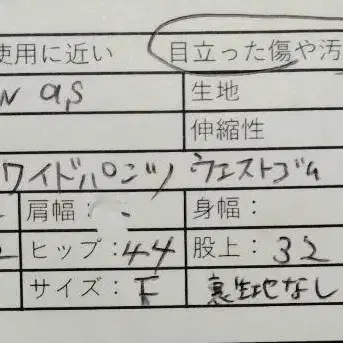 使用に近い 目立った傷や汚
as 生地
伸縮性
ワイドパンツ ウエストゴム
肩幅： 身幅：
ヒップ：44 股上：32
サイズ：F 裏生地なし